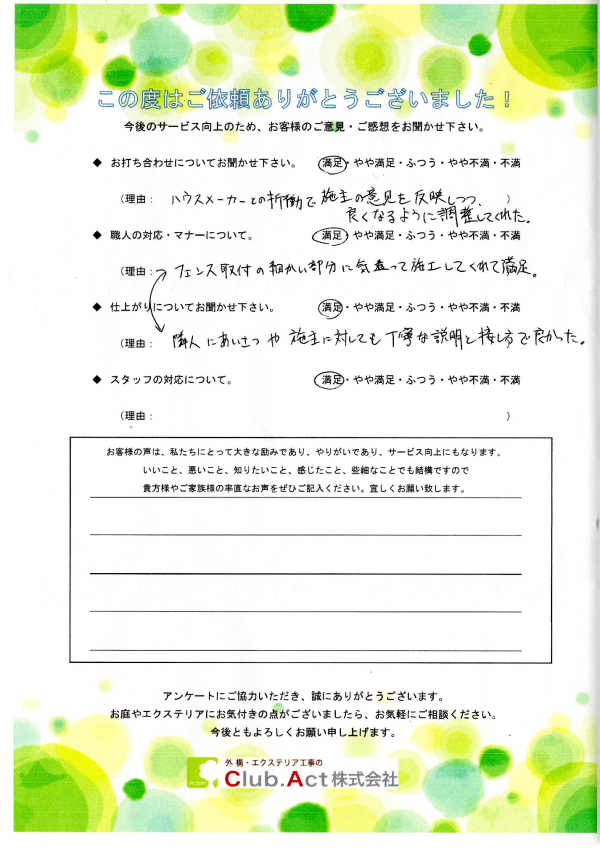 この度はご依頼ありがとうございました！
今後のサービス向上のため、お客様のご意見・ご感想をお聞かせ下さい。
◆ お打ち合わせについてお聞かせ下さい。 満足・やや満足・ふつう・やや不満・不満
(理由： ハウスメーカーとの折衝で施主の意見を反映しつつ、 )
良くなるように調整してくれた。
◆ 職人の対応・マナーについて。 満足・やや満足・ふつう・やや不満・不満
(理由： フェンス取付の細かい部分に気遣って施工してくれて満足。
◆ 仕上がりについてお聞かせ下さい。 満足・やや満足・ふつう・やや不満・不満
(理由： 隣人にあいさつや施主に対しても丁寧な説明と接し方で良かった。
◆ スタッフの対応について。 満足・やや満足・ふつう・やや不満・不満
(理由： )
お客様の声は、私たちにとって大きな励みであり、やりがいであり、サービス向上にもなります。
いいこと、悪いこと、知りたいこと、感じたこと、些細なことでも結構ですので
貴方様やご家族様の率直なお声をぜひご記入ください。宜しくお願い致します。
アンケートにご協力いただき、誠にありがとうございます。
お庭やエクステリアにお気付きの点がございましたら、お気軽にご相談ください。
今後ともよろしくお願い申し上げます。
外構・エクステリア工事の
Club.Act株式会社